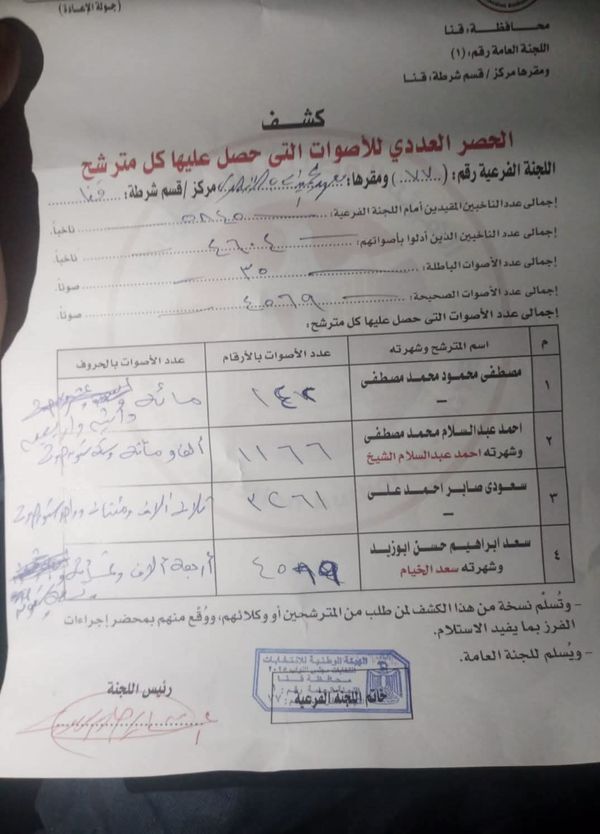 (جولة الإعادة)
محافظة: قنا
اللجنة العامة رقم: (١)
ومقرها مركز / قسم شرطة: قنا
كشف
الحصر العددي للأصوات التى حصل عليها كل مترشح
اللجنة الفرعية رقم: (٧٧) ومقرها: مركز / قسم شرطة: قنا
إجمالى عدد الناخبين المقيدين أمام اللجنة الفرعية: ٥٨٤٥ ناخباً.
إجمالى عدد الناخبين الذين أدلوا بأصواتهم: ٤٦٠٤ ناخباً.
إجمالى عدد الأصوات الباطلة: ٣٥ صوتاً.
إجمالى عدد الأصوات الصحيحة: ٤٥٦٩ صوتاً.
إجمالى عدد الأصوات التى حصل عليها كل مترشح:
م اسم المترشح وشهرته عدد الأصوات بالأرقام عدد الأصوات بالحروف
١ مصطفى محمود محمد مصطفى ١٤٢ مائة
– وأربعين
٢ احمد عبدالسلام محمد مصطفى ١١٦٦ ألف ومائة وستة وستون صوت
وشهرته احمد عبدالسلام الشيخ
٣ سعودى صابر احمد على ٣٢٦١ ثلاثة آلاف ومئتان وواحد وستون صوت
–
٤ سعد ابراهيم حسن ابوزيد أربعة آلاف
وشهرته سعد الخيام
– وتُسلّم نسخة من هذا الكشف لمن طلب من المترشحين أو وكلائهم، ووُقّع منهم بمحضر إجراءات
الفرز بما يفيد الاستلام.
– ويُسلم للجنة العامة.
الهيئة الوطنية للانتخابات
انتخابات مجلس النواب ٢٠٢٥
محافظة قنا
خاتم اللجنة الفرعية
رئيس اللجنة